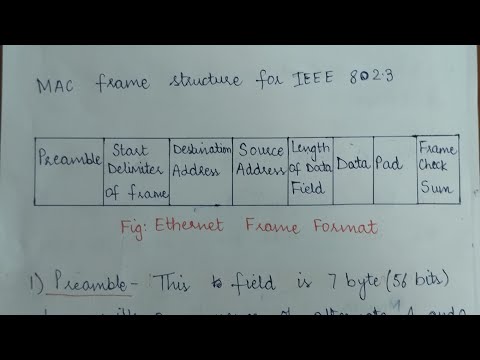 MAC frame structure for IEEE 802.3
Preamble
Start Delimiter Of frame
Destination Address
Source Address
Length Of Data Field
Data
Pad
Frame Check Sum
Fig: Ethernet Frame Format
1) Preamble - This field is 7 byte (56 bits)